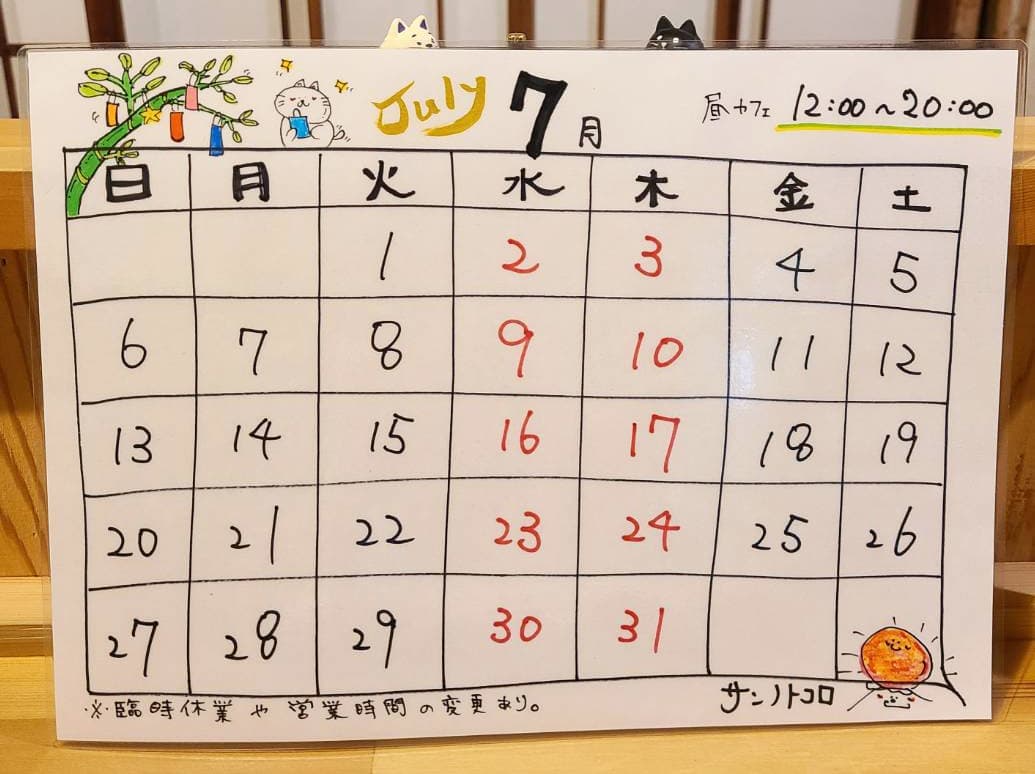 July 7月 昼カフェ 12:00~20:00
日 月 火 水 木 金 土
1 2 3 4 5
6 7 8 9 10 11 12
13 14 15 16 17 18 19
20 21 22 23 24 25 26
27 28 29 30 31
※臨時休業や営業時間の変更あり。
サンノトコロ